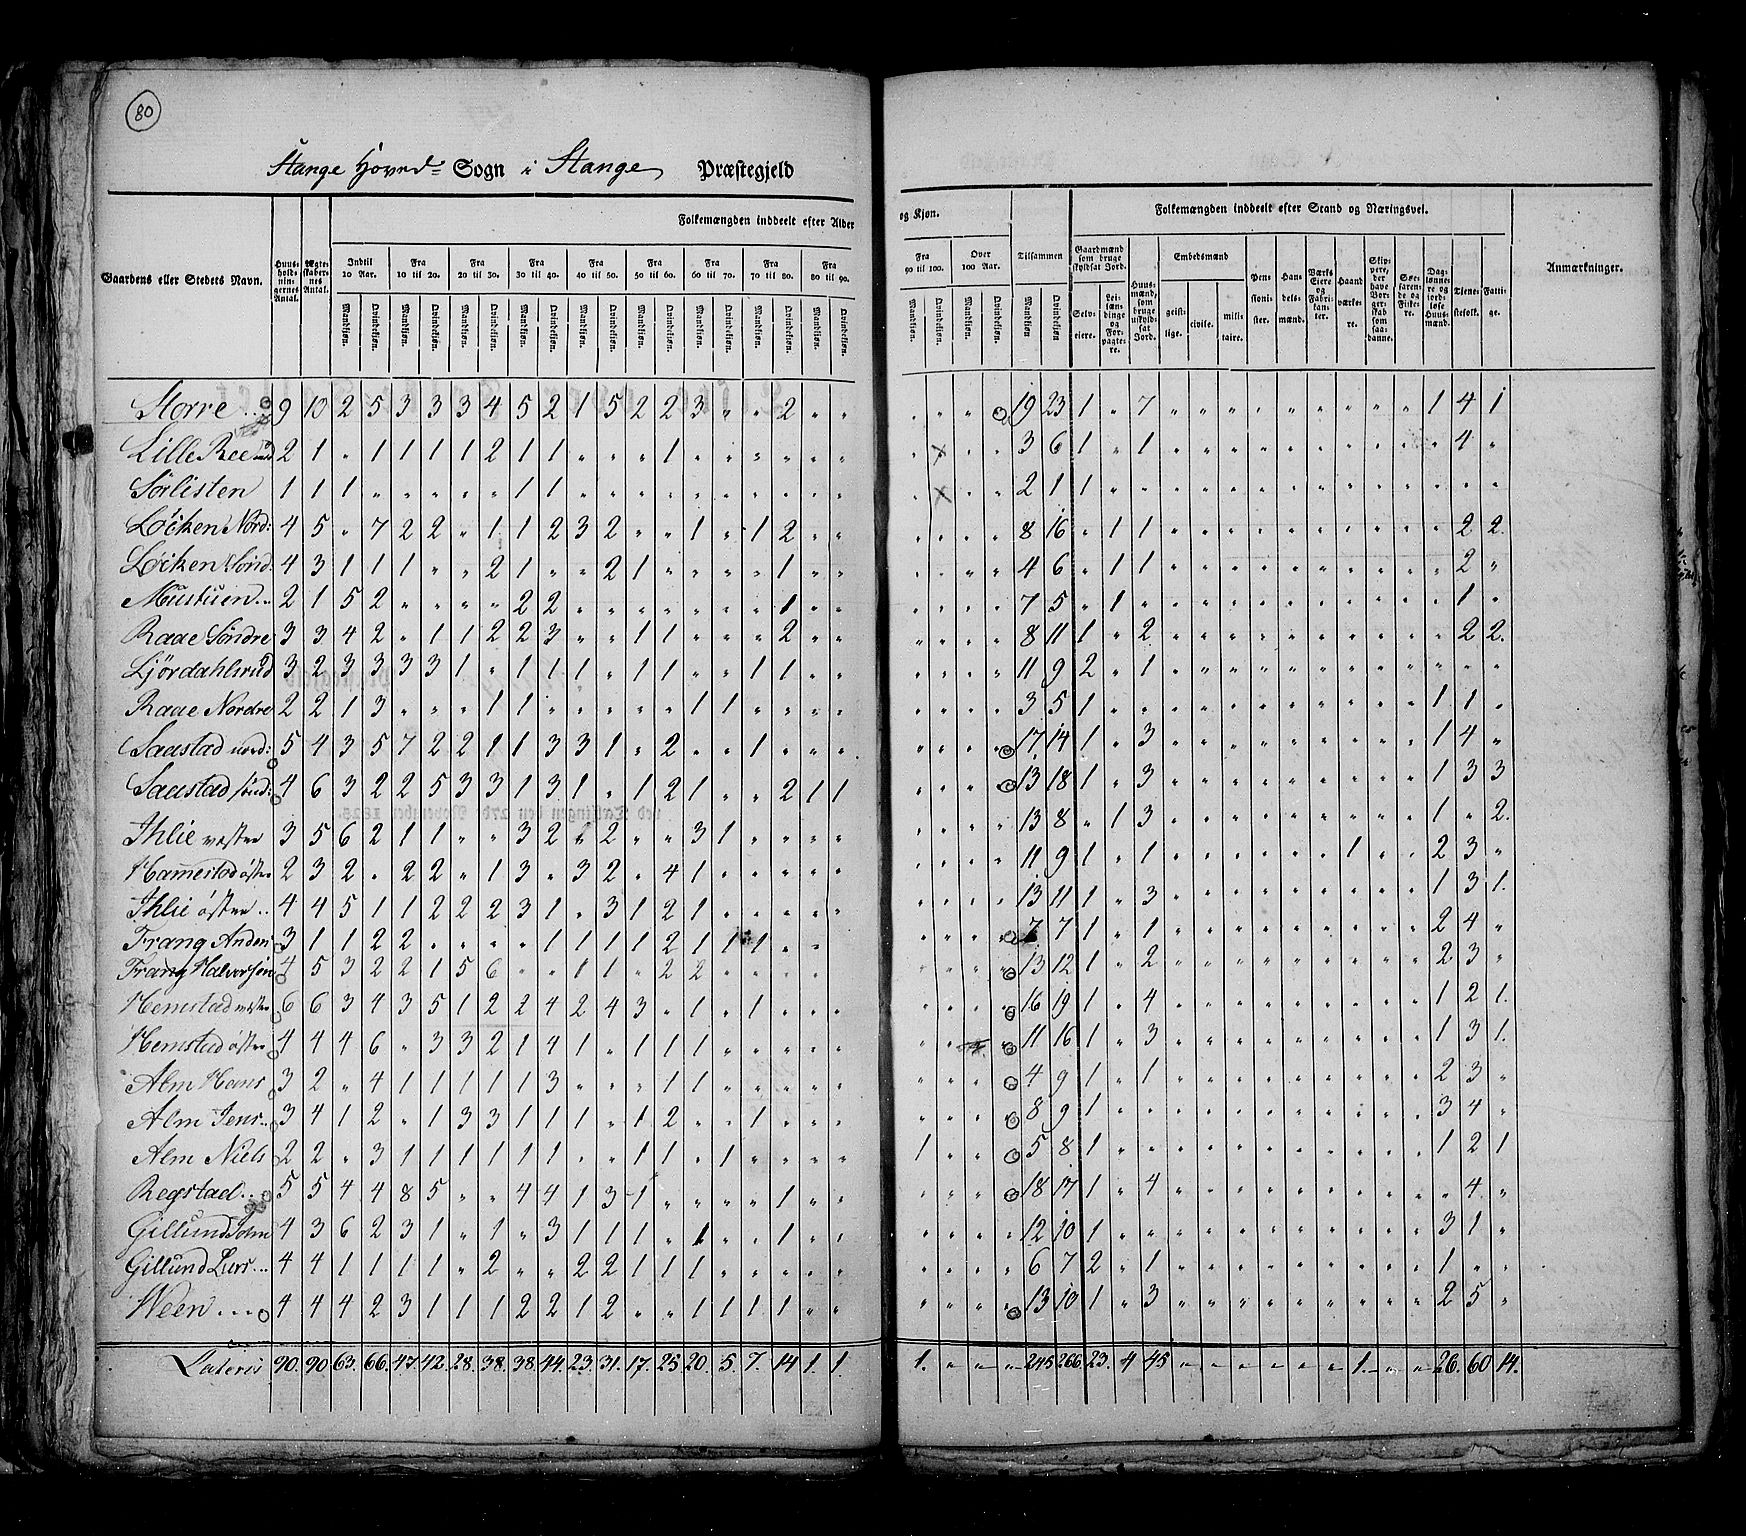 80
Stange Hoved= Sogn i Stange Præstegjeld
Gaardens eller Stedets Navn.
Huus-holdnin-gernes Antal.
Ægte-skaber-nes Antal.
Folkemængden inddeelt efter Alder og Kjøn.
Indtil 10 Aar. Fra 10 til 20. Fra 20 til 30. Fra 30 til 40. Fra 40 til 50. Fra 50 til 60. Fra 60 til 70. Fra 70 til 80. Fra 80 til 90. Fra 90 til 100. Over 100 Aar. Tilsammen
Mandkjøn. Qvindekjøn.
Folkemængden inddeelt efter Stand og Næringsvei.
Gaardmænd som bruge skyldsat Jord. Selv-eiere. Lei-lændinge og For-pagtere.
Huus-mænd, som bruge uskyld-sat Jord.
Embedsmænd geist-lige. civile. mili-taire.
Pen-sioni-ster. Han-dels-mænd. Værks Eiere og Fabri-kanter. Haand værke-re. Skip-pere, der have Bor-ger-skab som saa-danne. Søe-farende og Fiske-re. Dag-lønne-re og jord-løse Huus-mænd. Tjene-stefolk. Fatti-ge.
Anmærkninger.
Storre .. 9 10 2 5 3 3 3 4 5 2 1 5 2 2 3 „ „ 2 „ „ „ „ „ „ 19 23 1 „ 7 „ „ „ „ „ „ „ „ „ 1 4 1
Lille Ree 2 1 „ 1 1 1 1 2 1 1 „ „ „ 1 „ „ „ „ „ „ „ x „ „ 3 6 1 „ 1 „ „ „ „ „ „ „ „ „ „ 4 „
Sørlisten 1 1 1 „ „ „ „ „ 1 1 „ „ „ „ „ „ „ „ „ „ „ x „ „ 2 1 1 „ „ „ „ „ „ „ „ „ „ „ „ „ „
Löcken Nord: 4 5 „ 7 2 2 „ 1 1 2 3 2 „ „ 1 „ 1 2 „ „ „ „ „ „ 8 16 „ 1 1 „ „ „ „ „ „ „ „ „ „ 2 2.
Löcken Sönd. 4 3 1 1 1 „ „ 2 1 „ „ 2 1 „ „ „ „ 1 „ „ „ „ „ „ 4 6 „ 1 1 „ „ „ „ „ „ „ „ „ „ 2 „
Mustuen .. 2 1 5 2 „ „ „ „ 2 2 „ „ „ „ „ „ „ 1 „ „ „ „ „ „ 7 5 „ 1 „ „ „ „ „ „ „ „ „ „ „ 1 „
Raae Söndre 3 3 4 2 „ 1 1 2 2 3 „ „ 1 1 „ „ „ 2 „ „ „ „ „ „ 8 11 1 „ 2 „ „ „ „ „ „ „ „ „ „ 2 2.
Ljördahlsrud 3 2 3 3 3 3 1 „ 1 1 1 „ 1 1 „ „ 1 1 „ „ „ „ „ „ 11 9 2 „ 1 „ „ „ „ „ „ „ „ „ „ „ „
Raae Nordre 2 2 1 3 „ „ „ 1 1 „ „ „ „ „ 1 1 „ „ „ „ „ „ „ „ 3 5 1 „ „ „ „ „ „ „ „ „ „ „ 1 1 „
Saastad nord: 5 4 3 5 7 2 2 1 1 3 3 1 „ 2 „ „ 1 „ „ „ „ „ „ „ 17 14 1 „ 3 „ „ „ „ „ „ „ „ „ 1 4 „
Saastad sönd: 4 6 3 2 2 5 3 3 1 3 1 „ 1 2 1 „ „ 2 1 1 „ „ „ „ 13 18 1 „ 3 „ „ „ „ „ „ „ „ „ 1 3 3
Ihlie vestre 3 5 6 2 1 1 „ „ 3 2 „ 2 „ „ 3 1 „ „ „ „ „ „ „ „ 13 8 „ 1 3 „ „ „ „ „ „ „ „ „ 1 „ 2.
Hamestad østre 2 3 2 „ 2 2 „ 1 3 „ 3 2 „ 4 1 „ „ „ „ „ „ „ „ „ 11 9 1 „ 1 „ „ „ „ „ „ 1 „ „ 2 3 „
Ihlie östre .. 4 4 5 1 1 2 2 2 3 1 „ 3 1 2 1 „ „ „ „ „ „ „ „ „ 13 11 1 „ 3 „ „ „ „ „ „ „ „ „ 1 3 1.
Frang Anders 3 1 1 2 2 „ „ „ „ 1 1 1 1 2 1 1 1 „ „ „ „ „ „ 7 7 1 „ 1 „ „ „ „ „ „ „ „ „ 2 4 „
Frang Halvorsen 4 5 3 2 2 1 5 6 „ „ 1 1 „ 2 2 „ „ „ „ „ „ „ „ „ 13 12 1 „ 2 „ „ „ „ „ „ „ „ „ 2 3 „
Hemstad vestre 6 6 3 4 3 5 1 2 2 4 2 4 3 „ 1 „ 1 „ „ „ „ „ „ „ 16 19 1 „ 4 „ „ „ „ „ „ „ „ „ 1 2 1.
Hemstad østre 4 4 4 6 „ 3 3 2 1 4 1 „ 1 1 1 „ „ „ „ „ „ „ „ „ 11 16 1 „ 3 „ „ „ „ „ „ „ „ „ 1 3 1.
Alm Hans 3 2 „ 4 1 1 1 1 1 3 „ „ „ 1 1 „ „ „ „ „ „ „ „ „ 4 9 1 „ 1 „ „ „ „ „ „ „ „ „ 2 3 „
Alm Jens.. 3 4 1 2 „ 1 3 3 1 1 1 „ 1 2 „ „ 1 „ „ „ „ „ „ „ 8 9 1 „ „ „ „ „ „ „ „ „ „ „ 3 4 „
Alm Niels 2 2 „ 3 1 1 1 1 1 1 „ „ 1 1 „ 1 „ „ „ „ 1 „ „ „ 5 8 1 „ „ „ „ „ „ „ „ „ „ „ 1 2 1
Regstad .. 5 5 4 4 8 5 „ „ 4 4 1 3 1 „ „ „ „ 1 „ „ „ „ „ „ 18 17 1 „ 4 „ „ „ „ „ „ „ „ „ „ 4 „
Gillund John 4 3 6 2 3 1 „ 1 „ 3 1 1 1 „ 1 „ „ 1 „ „ „ „ „ „ 12 10 1 „ „ „ „ „ „ „ „ „ „ „ 3 1 „
Gillund Lars ... 4 4 1 1 1 1 „ 2 „ „ 2 2 1 1 1 „ „ „ „ „ „ „ „ „ 6 7 2 „ 1 „ „ „ „ „ „ „ „ „ 1 „ „
Ween .... 4 4 4 2 3 1 1 1 2 2 1 2 „ „ 1 1 1 1 „ „ „ „ „ „ 13 10 1 „ 3 „ „ „ „ „ „ „ „ „ 2 5 „
Lateris 90. 90 63. 66. 47. 42. 28. 38. 38. 44. 23. 31. 17. 25. 20. 5. 7. 14 1. 1. 1. „ „ „ 245 266. 23. 4 45 „ „ „ „ „ „ 1. „ „ 26. 60 14.